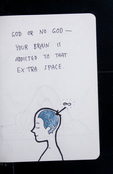 GOD OR NO GOD —
YOUR BRAIN IS
ADDICTED TO THAT
EXTRA SPACE.